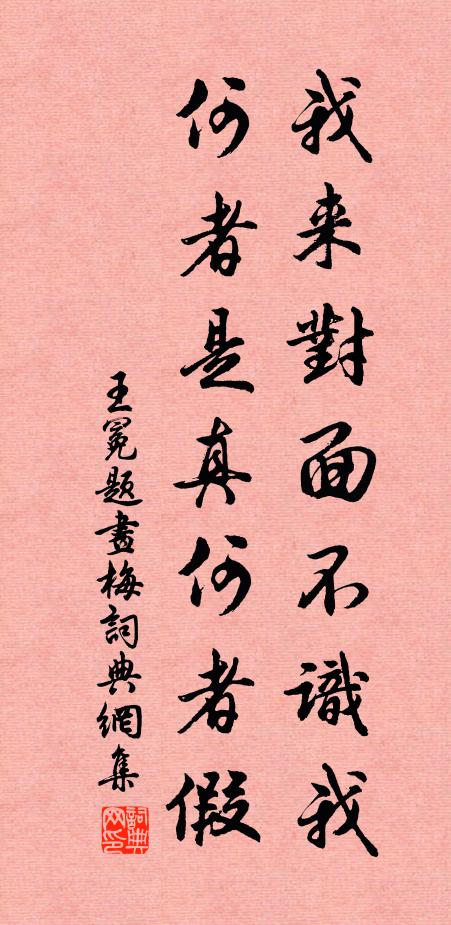 我来對面不識我
何者是真何者假
王冕題畫梅詞典網集
詞典网印